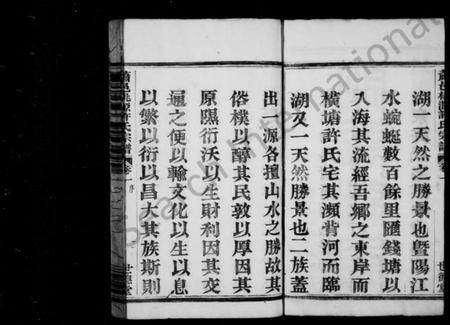 湖一天然之勝景也暨陽江
水蜿蜒數百餘里匯錢塘以
入海其流經吾鄉之東岸而
橫塘許氏宅其瀕背河而臨
湖又一天然勝景也二族蓋
蕭邑桃源許氏宗譜 卷一
世德堂
出一派各擅山水之勝故其
俗樸以醇其民敦以厚因其
原隰衍沃以生財利因其交
通之便以輸文化以生以息
以繁以衍以昌大其族斯則
Search International